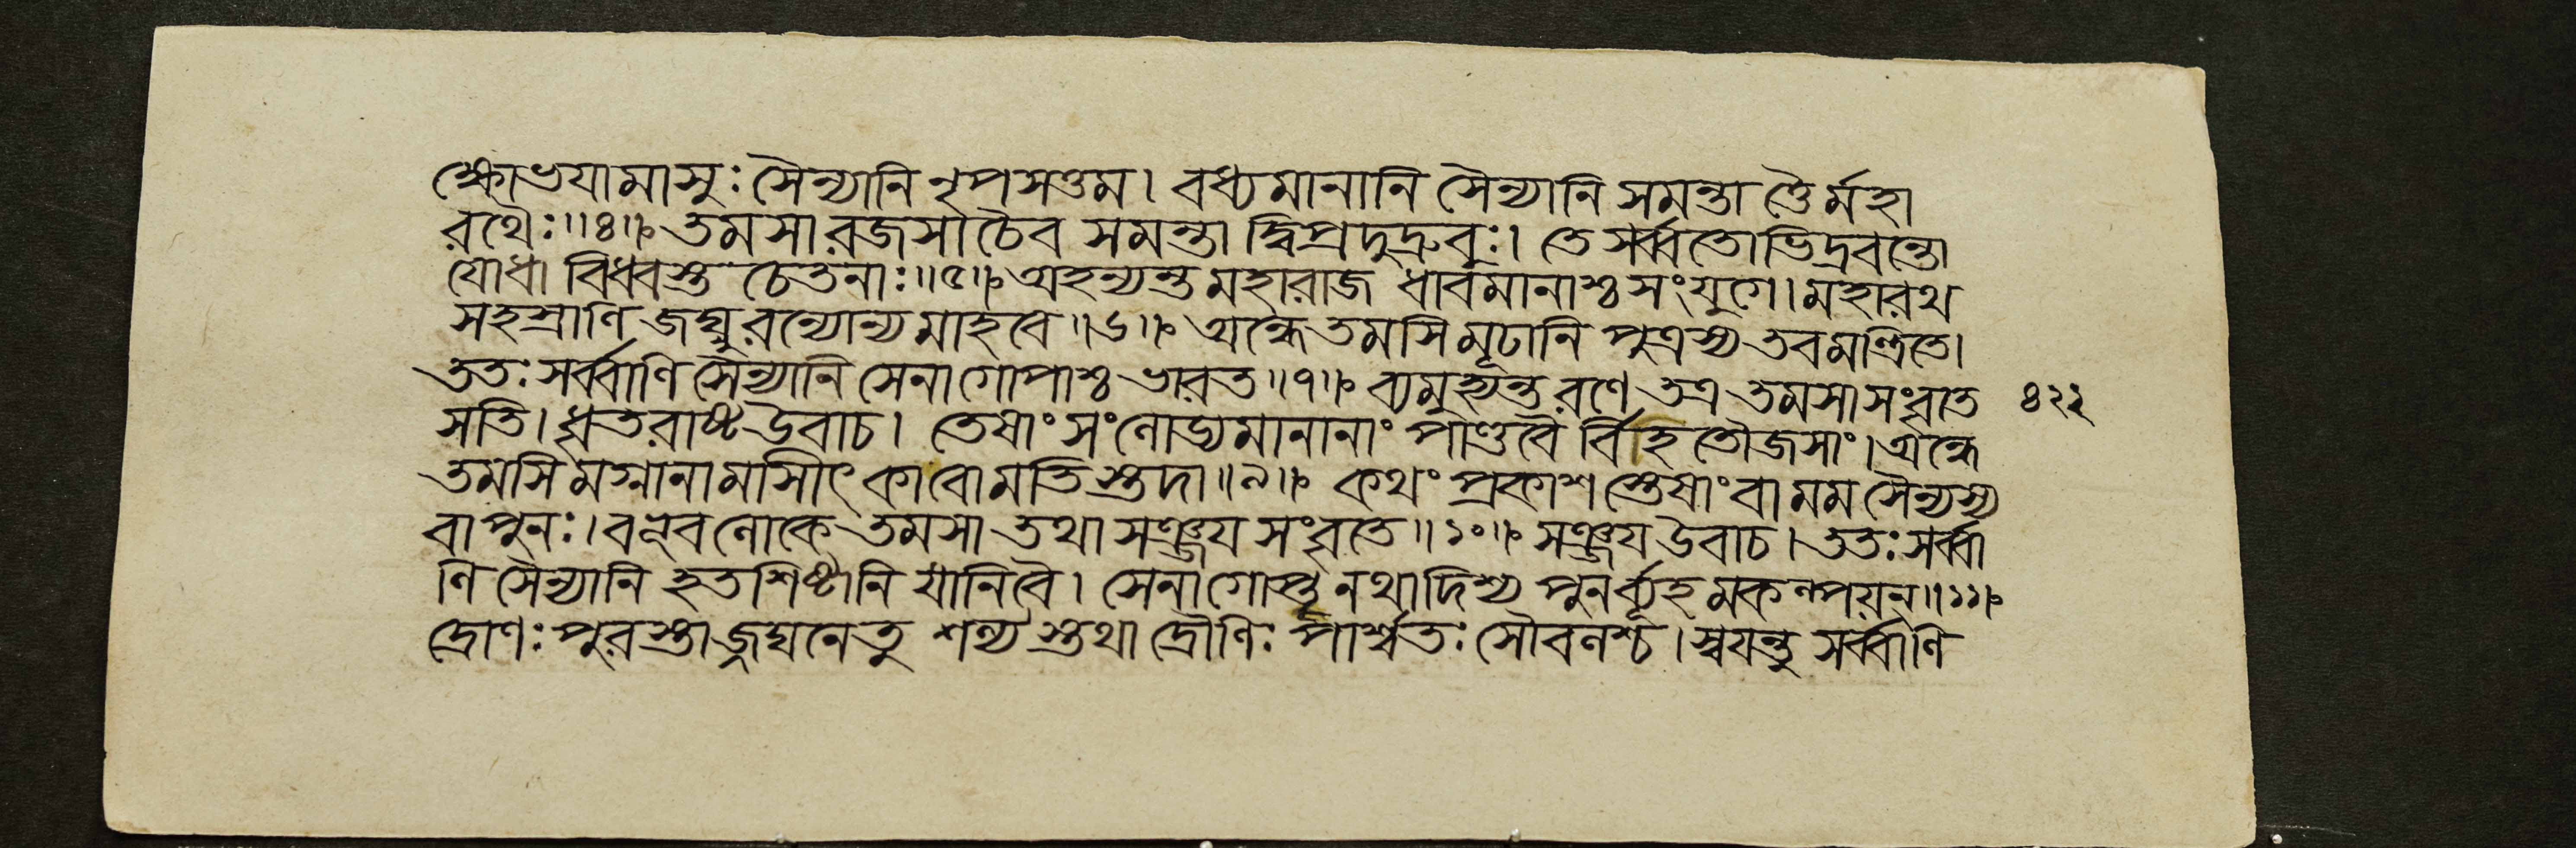 ক্ষোভযামাসুঃ সৈন্যানি নৃপসত্তম। বধ্যমানানি সৈন্যানি সমন্তা ত্তৈর্মহা
রথৈঃ॥৪॥ তমসা রজসা চৈব সমন্তা দ্বিপ্রদুদ্রুবুঃ। তে সর্ব্বতোভিদ্রবন্তো
যোধা বিধবস্ত চেতনাঃ॥৫॥ অহন্যন্ত মহারাজ ধাবমানাশ্চ সংযুগে। মহারথ
সহস্রাণি জঘ্নুরন্যোন্য মাহবে॥৬॥ অন্ধে তমসি মূঢানি পুত্রস্য তব মন্ত্রিতে।
ততঃ সর্ব্বাণি সৈন্যানি সেনাগোপাশ্চ ভারত॥৭॥ ব্যমুহ্যন্ত রণে তত্র তমসা সংবৃতে
সতি। ধৃতরাষ্ট্র উবাচ। তেষাং সংলোড্যমানানাং পাণ্ডবৈ র্বিহতৌজসাং। অন্ধে
তমসি মগ্নানামাসীৎ কাবোমতি স্তদা॥৯॥ কথং প্রকাশ স্তেষাং বা মম সৈন্যস্য
বা পুনঃ। বভূব লোকে তমসা তথা সঞ্জয সংবৃতে॥১০॥ সঞ্জয উবাচ। ততঃ সর্ব্বা
ণি সৈন্যানি হতশিষ্টানি যানিবৈ। সেনাগোপ্তৄনথাদিশ্য পুনর্ব্যূহমকল্পযন্॥১১॥
দ্রোণঃ পুরস্তা জ্জঘনেতু শল্য স্তথা দ্রৌণিঃ পার্শ্বতঃ সৌবলশ্চ। স্বযন্তু সর্ব্বাণি
৪২২